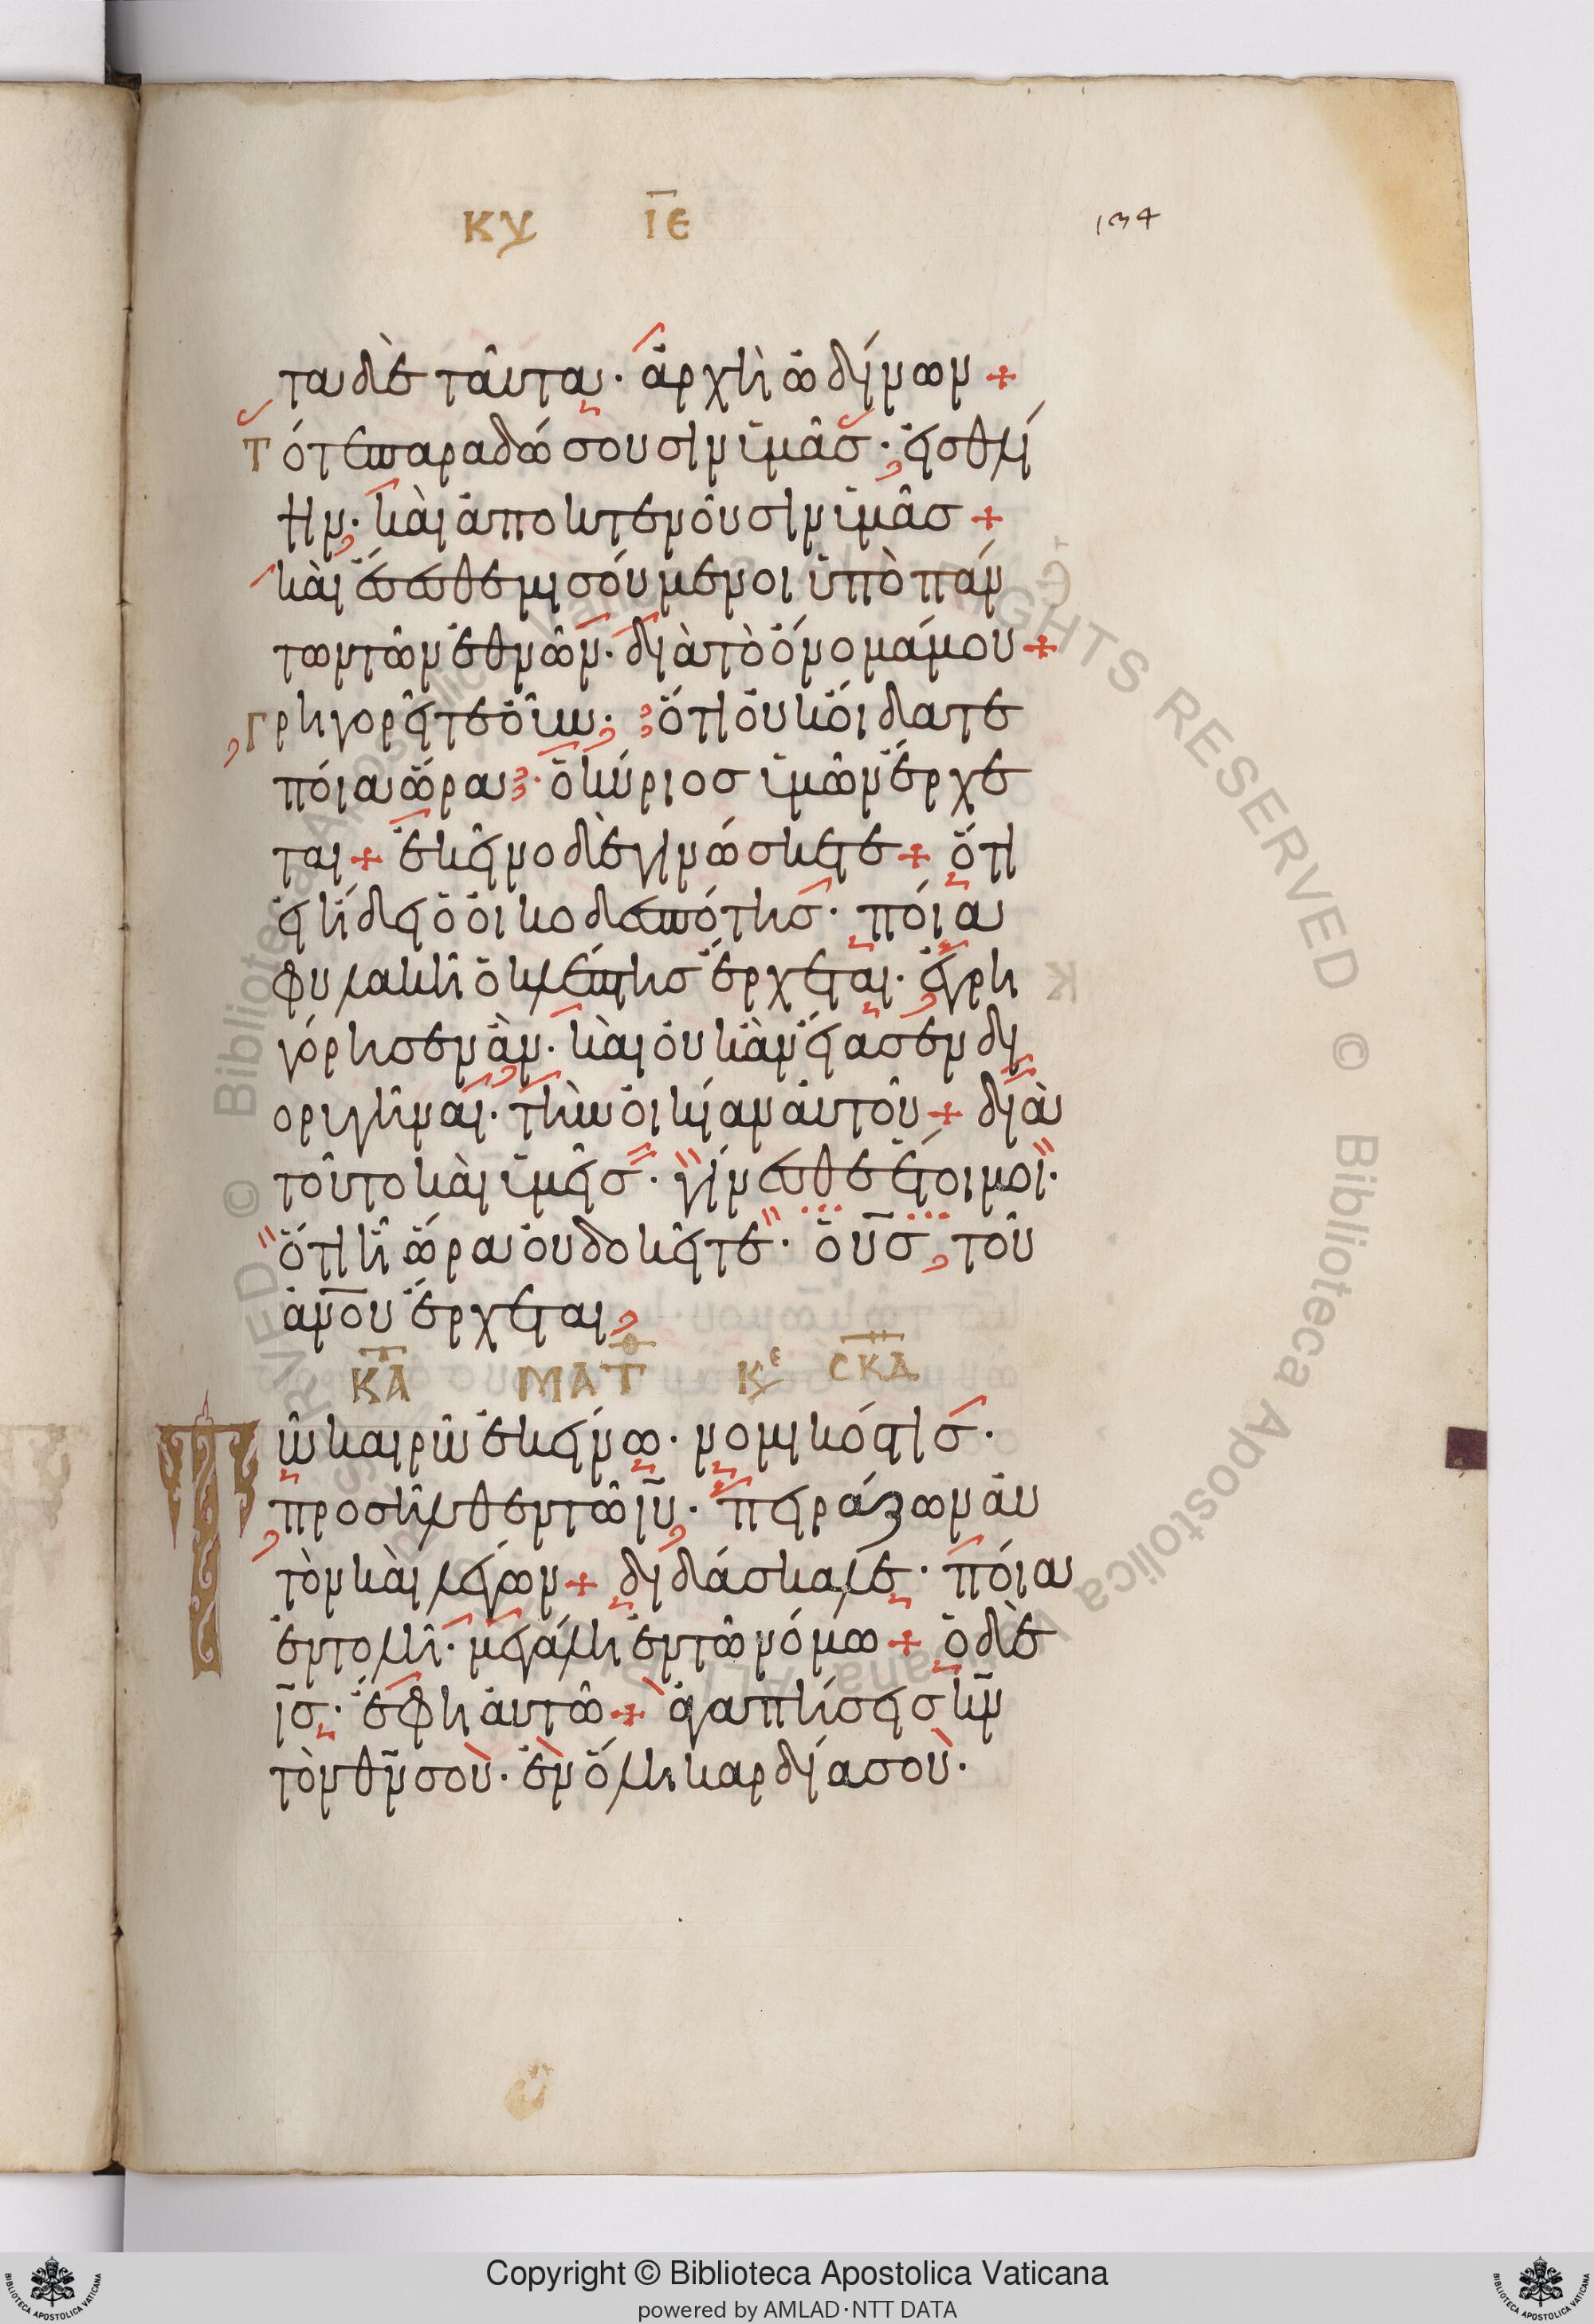 ΚΥ ΙΕ
134
τα δὲ ταῦτα· ἀρχὴ ὠδίνων +
Τότε παραδώσουσιν ὑμᾶσ· εἰσ θλί
ψιν· καὶ ἀποκτενοῦσιν ὑμᾶσ +
καὶ ἔσωσθε μισούμενοι ὑπὸ πάν
των τῶν ἐθνῶν· διὰ τὸ ὄνομά μου +
Γρηγορεῖτε οὖν· ὅτι οὐκ οἴδατε
ποία ὥρα· ὁ κύριοσ ὑμῶν ἔρχε
ται + ἐκεῖνο δὲ γινώσκετε + ὅτι
εἰ ἤδει ὁ οἰκοδεσπότησ· ποία
φυλακῆ ὁ κλέπτησ ἔρχεται· ἐγρη
γόρησεν ἄν· καὶ οὐκ ἂν εἴασεν δι
ορυγῆναι· τὴν οἰκίαν αὐτοῦ + διὰ
τοῦτο καὶ ὑμεῖσ· γίνεσθε ἕτοιμοι·
ὅτι ἧ ὥρα οὐ δοκεῖτε· ὁ υσ τοῦ
ανου ἔρχεται
ΚΑ ΜΑΤΘ ΚΥ ΙΕ ϹΚΔ
Τῶ καιρῶ ἐκείνω· νομικόσ τισ·
προσῆλθεν τῶ ιυ· πειράζων αὐ
τὸν καὶ λέγων + διδάσκαλε· ποία
ἐντολὴ· μεγάλη ἐν τῶ νόμω + ὁ δὲ
ισ· ἔφη αὐτῶ + ἀγαπήσεισ κν
τὸν θν σοὺ· ἐν ὅλη καρδία σοὺ·
Copyright © Biblioteca Apostolica Vaticana
powered by AMLAD·NTT DATA